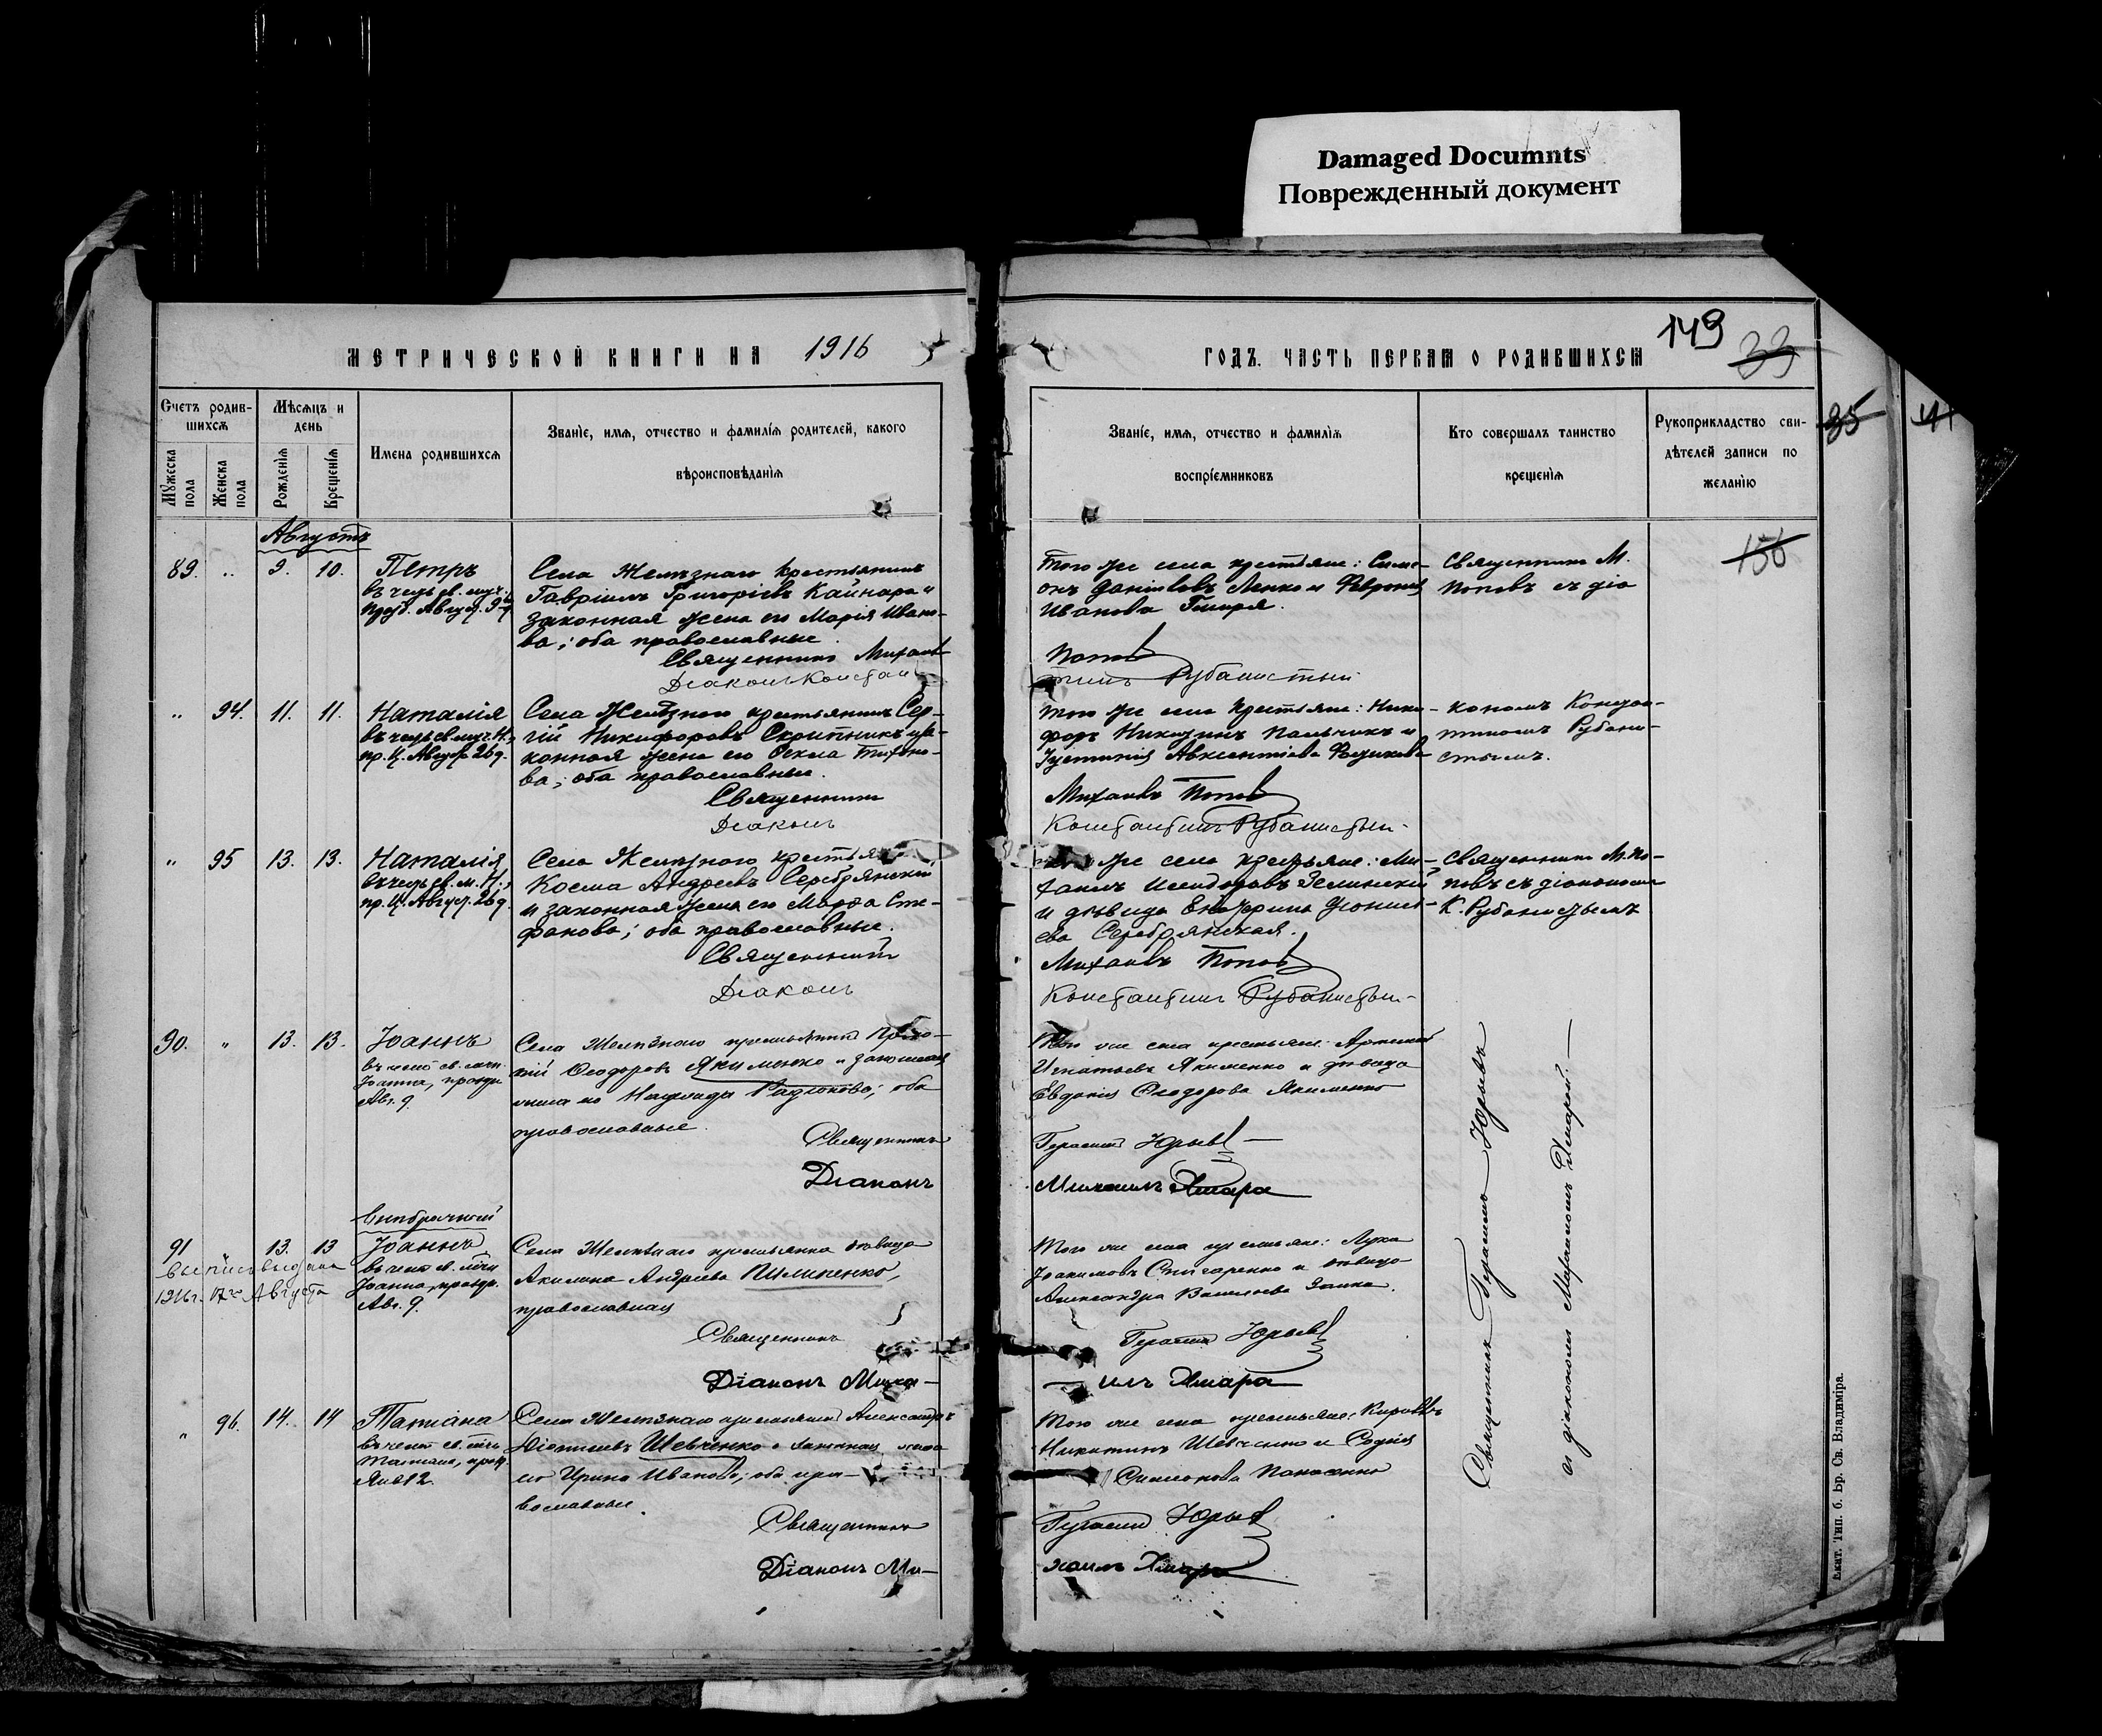 Damaged Documnts
Поврежденный документ
МЕТРИЧЕСКОЙ КНИГИ НА 1916
ГОДЪ. ЧАСТЬ ПЕРВАЯ О РОДИВШИХСЯ
149
33
35
41
Счетъ родив-
шихся
Мужеска пола
Женска пола
Мѣсяцъ и
день
Рожденія
Крещенія
Имена родившихся
Званіе, имя, отчество и фамилія родителей, какого
вѣроисповѣданія
Званіе, имя, отчество и фамилія
воспріемниковъ
Кто совершалъ таинство
крещенія
Рукоприкладство сви-
дѣтелей записи по
желанію
156
Августъ
89. „ 9. 10.
Петръ
въ честь св. муч.
празд. Август. 9 д.
Села Желѣзнаго крестьянинъ
Гавріилъ Григорьевъ Кайнара и
законная жена его Марія Ивано-
ва; оба православные
Священникъ Михаилъ
Діаконъ Констан
Того же села крестьяне: Симе-
онъ Даніиловъ и Февронія
Иванова Гмиря.
Поповъ
тинъ Рубанистый
Священникъ М.
Поповъ съ діа
„ 94. 11. 11.
Наталія
въ честь св. муч. Н.,
пр. Ц. Август. 26 д.
Села Желѣзнаго крестьянинъ Сер-
гій Никифоровъ Скрипникъ и за-
конная жена его Ѳекла Тихоно-
ва; оба православные.
Священникъ
Діаконъ
того же села крестьяне: Ники-
форъ Никитинъ Пальчикъ и
Іустинія Авксентіева
Михаилъ Поповъ
Константинъ Рубанистый
кономъ Констан-
тиномъ Рубани-
стымъ.
„ 95 13. 13.
Наталія
въ честь св. м. Н.,
пр. Ц. Август. 26 д.
Села Желѣзнаго крестья
Косма Андреевъ Серебрянскій
и законная жена его Марѳа Сте-
фанова; оба православные.
Священникъ
Діаконъ
же села крестьяне: Ми-
хаилъ Исидоровъ Зелинскій
и дѣвица Екатерина Діонисі-
ева Серебрянская.
Михаилъ Поповъ
Константинъ Рубанистый
священникъ М. По-
повъ съ діакономъ
К. Рубанистымъ
90. „ 13. 13.
Іоаннъ
въ честь св. муч.
Іоанна, праздн.
Авг. 9.
Села Желѣзнаго крестьянинъ Проко-
пій Ѳеодоровъ Якименко и законная
жена его Родіонова; оба
православные.
Священникъ
Діаконъ
Того же села крестьяне: Артемій
Игнатьевъ Якименко и дѣвица
Евдокія Ѳеодорова Якименко
Герасимъ Юрьевъ
Михаилъ Хмара
Священникъ Герасимъ Юрьевъ
съ діакономъ Михаиломъ Хмарой.
внѣбрачный
91 „ 13. 13
Іоаннъ
въ честь св. муч.
Іоанна, праздн.
Авг. 9.
выпись выдана
1916 г. 17го Августа
Села Желѣзнаго крестьянка дѣвица
Акилина Андреева Пилипенко,
православная
Священникъ
Діаконъ Миха-
Того же села крестьяне: Лука
Іоакимовъ и дѣвица
Александра Васильева Заика.
Герасимъ Юрьевъ
илъ Хмара
„ 96. 14. 14
Татіана
въ честь св. муч.
Татіаны, празд.
Янв 12.
Села Желѣзнаго крестьянинъ Александръ
Діонисіевъ Шевченко и законная жена
его Ирина Иванова; оба пра-
вославные.
Священникъ
Діаконъ Ми-
Того же села крестьяне: Кириллъ
Никитинъ Шевченко и
Симеонова Панасенко
Герасимъ Юрьевъ
хаилъ Хмара
Екат. Тип. б. Бр. Св. Владиміра.